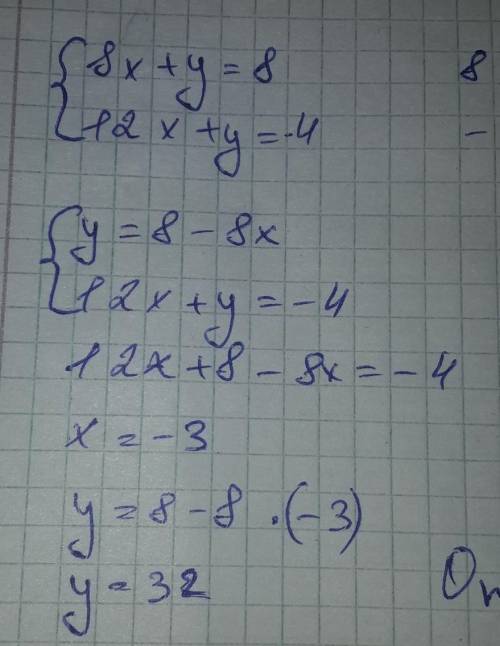 8x + y = 8
8
12x + y = -4
-
y = 8 - 8x
12x + y = -4
12x + 8 - 8x = -4
x = -3
y = 8 - 8 · (-3)
y = 32